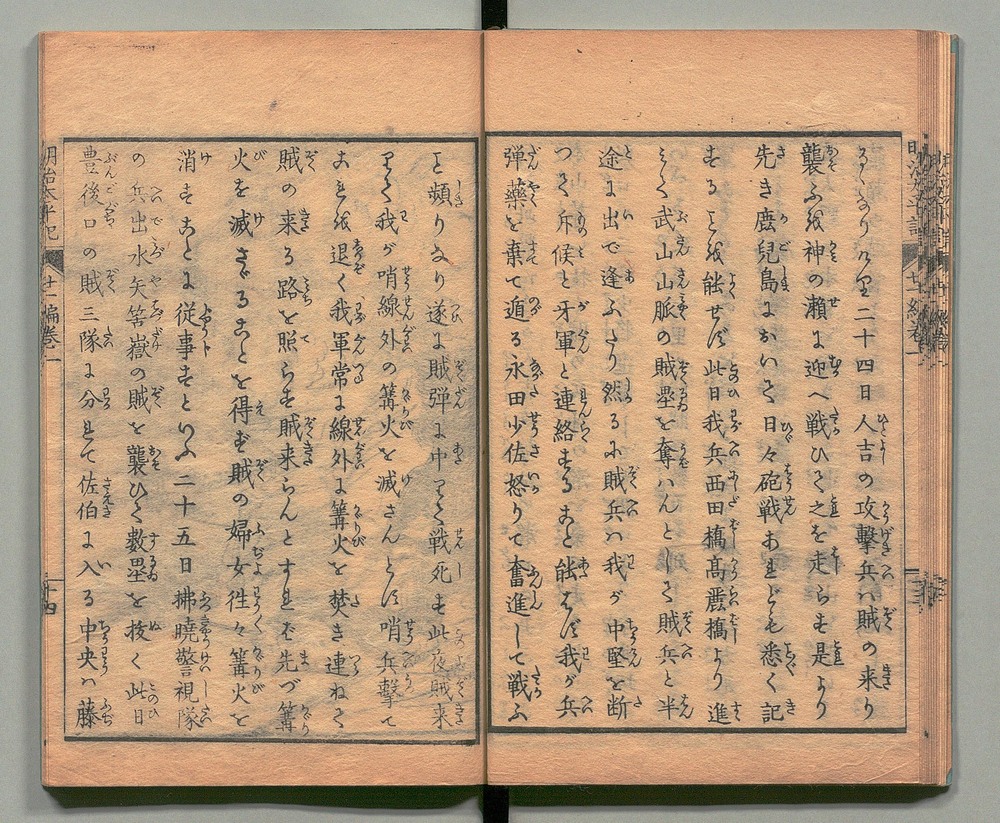 るゝなり仝二十四日人吉の攻撃兵ハ賊の来り
襲ふを神の瀬に迎へ戦ひて之を走らす是より
先き鹿児島においてハ日々砲戦あれども悉く記
することを能せず此日我兵西田橋高麗橋より進
みて武山山脈の賊塁を奪ハんとして賊兵と半
途に出で逢ふたり然るに賊兵ハ我が中堅を断
つて斥候と牙軍と連絡すること能はず我が兵
弾薬を棄て遁る永田少佐怒りて奮進して戦ふ
こと頻りなり遂に賊弾に中りて戦死す此夜賊来
りて我が哨線外の篝火を滅さんとす哨兵撃て
これを退く我軍常に線外に篝火を焚き連ねて
賊の来る路を照らす賊来らんとすれば先づ篝
火を滅さゞることを得ず賊の婦女徃々篝火を
消すことに従事すといふ二十五日拂暁警視隊
の兵出水矢筈嶽の賊を襲ひて数塁を抜く此日
豊後口の賊三隊に分れて佐伯に入る中央ハ藤
明治太平記
廿一編巻一
十四